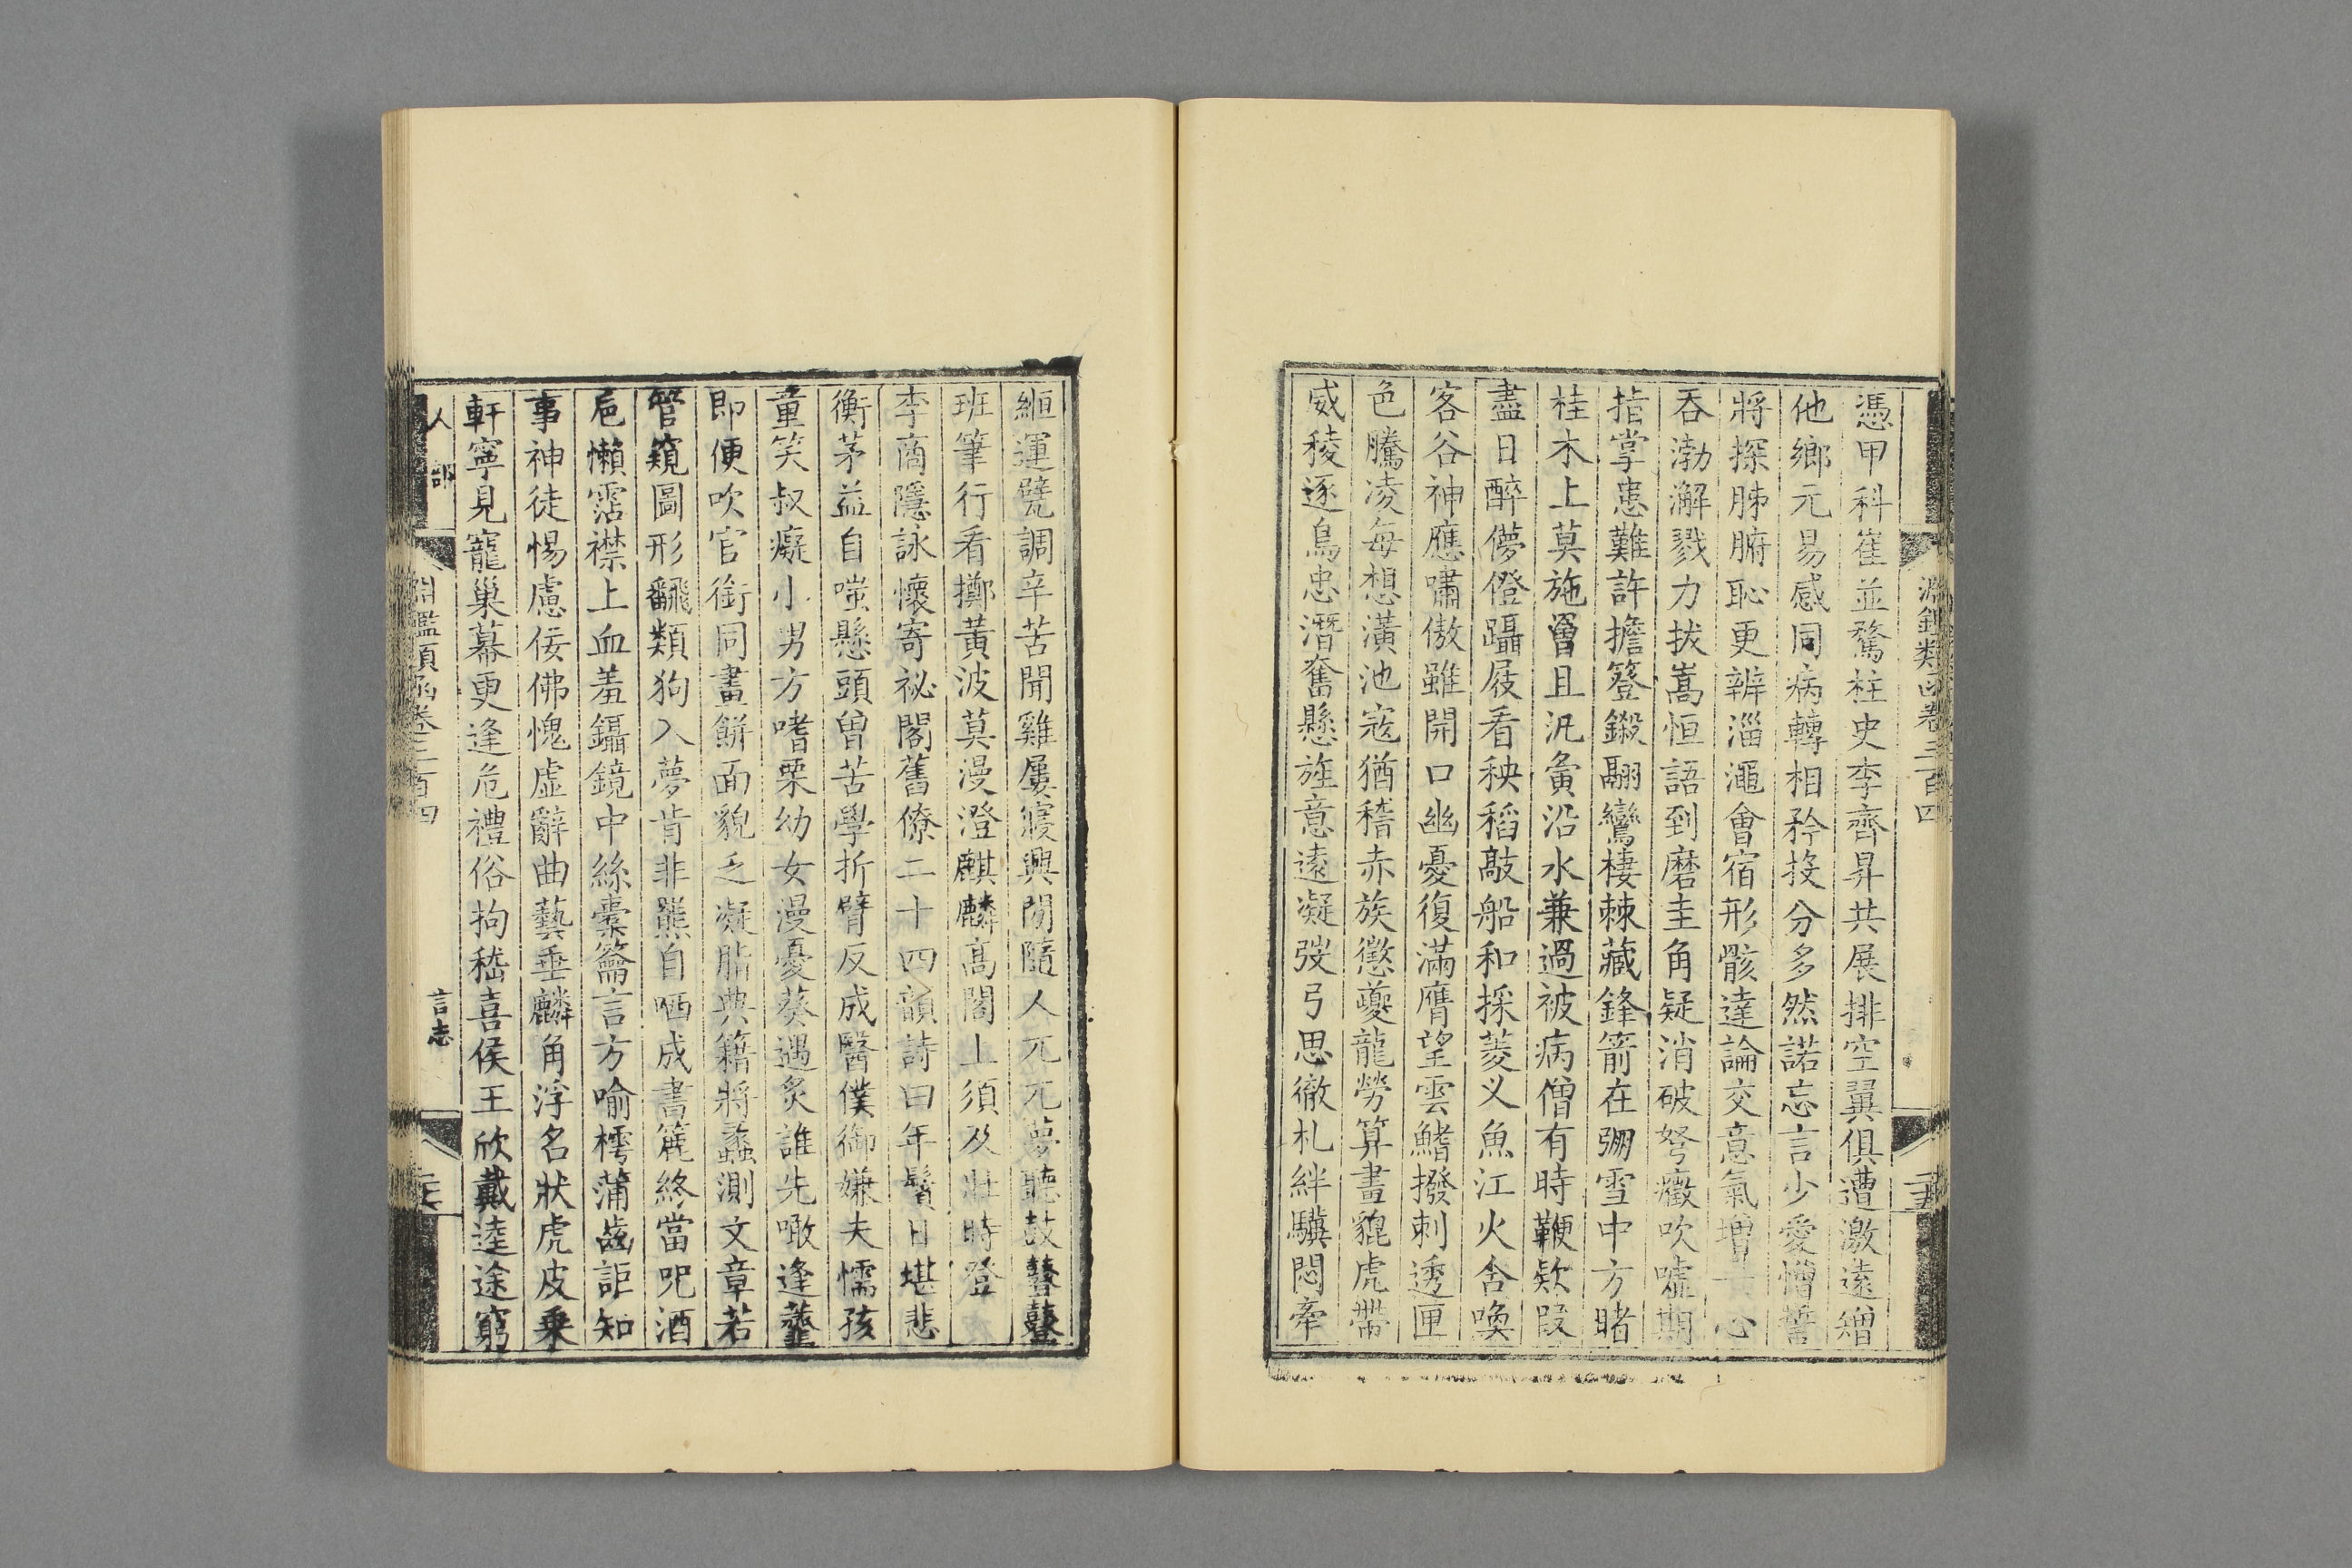 淵鑑類函卷三百四
憑甲科崔並騖柱史李齊昇共展排空翼俱遭激遠矰
他鄉元易感同病轉相矜投分多然諾忘言少愛憎誓
將探肺腑恥更辨淄澠會宿形骸達論交意氣增 心
吞渤澥戮力拔嵩恒語到磨圭角疑消破弩癥吹噓期
指掌患難許擔簦鎩翮鸞棲棘藏鋒箭在弸雪中方睹
桂木上莫施罾且汎夤沿水兼過被病僧有時鞭欵段
盡日醉儚僜躡屐看秧稻敲船和採菱义魚江火含喚
客谷神應嘯傲雖開口幽憂復滿膺望雲鰭撥刺透匣
色騰凌每想潢池寇猶稽赤族懲夔龍勞算畫貔虎帶
威稜逐鳥忠潛奮懸旌意遠凝弢弓思徹札絆驥悶牽
緪運甓調辛苦聞雞屢寢興閒隨人兀兀夢聽鼓鼞鼞
班筆行看擲黃波莫漫澄麒麟高閣上須及壯時登
李商隱詠懷寄祕閣舊僚二十四韻詩曰年鬢日堪悲
衡茅益自嗤懸頭曾苦學折臂反成醫僕御嫌夫懦孩
童笑叔癡小男方嗜栗幼女漫憂葵遇炙誰先噉逢虀
即便吹官銜同畫餅面貌乏凝脂典籍將蠡測文章若
管窺圖形翻類狗入夢肯非羆自哂成書簏終當呪酒
巵懶霑襟上血羞鑷鏡中絲橐籥言方喻樗蒲齒詎知
事神徒惕慮佞佛愧虛辭曲藝垂麟角浮名狀虎皮乗
軒寧見寵巢幕更逢危禮俗拘嵇喜侯王欣戴逵途窮
人部
淵鑑類函卷三百四
言志